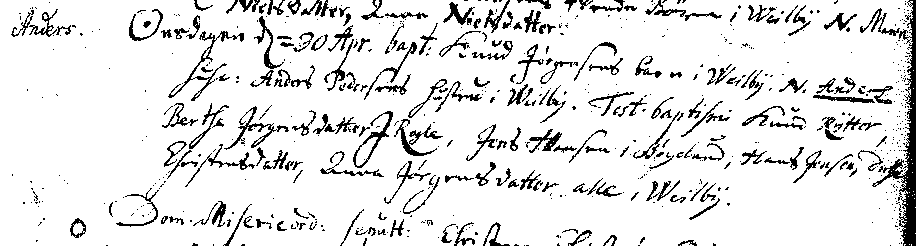 Nielsdatter, Anna Nielsdatter.
Anders. Onsdagen d. 30 Apr. bapt: Knud Jørgensens barn i Weilby. N. Anders
Susc: Anders Pedersens hustru i Wilby. Test. baptismi Knud Rytter,
Bertha Jørgensdatter i Røgle, Jens Hansen i Bøgelund, Hans Jensen,
Christensdatter, Anna Jørgensdatter alle i Weilby.
Dom. Misericord: sepult: